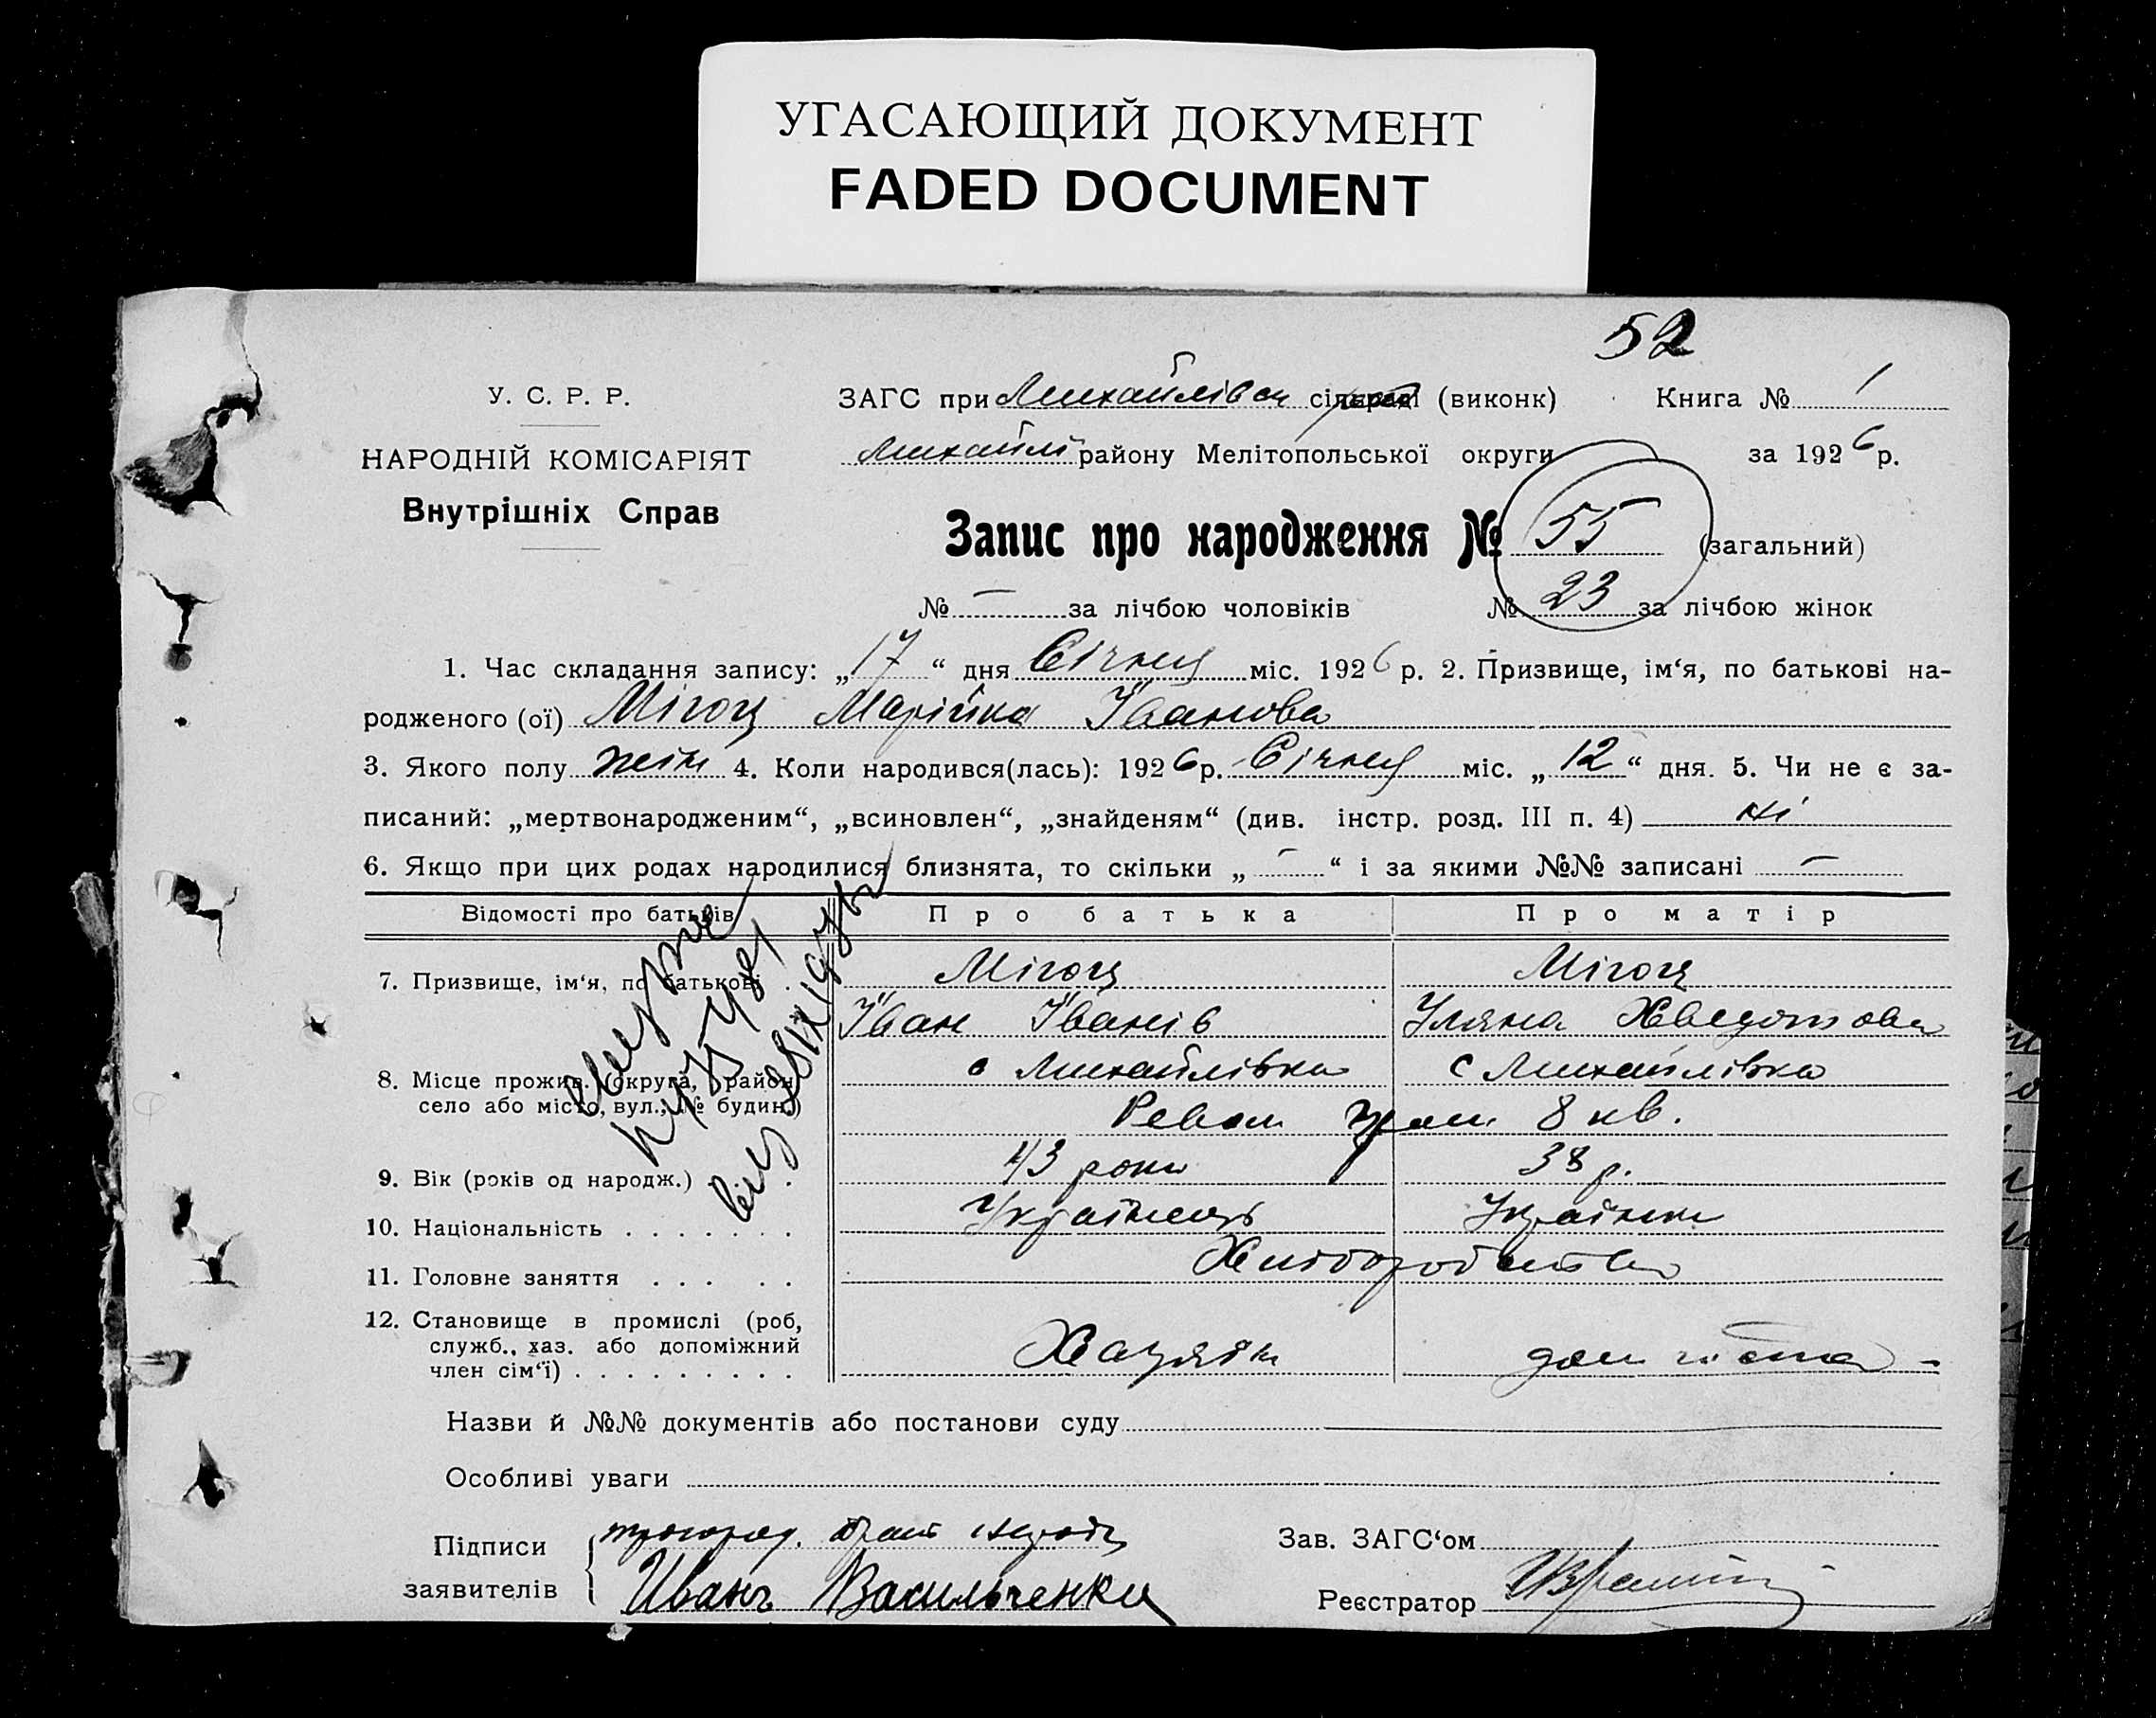 УГАСАЮЩИЙ ДОКУМЕНТ
FADED DOCUMENT
52
У. С. Р. Р.
НАРОДНІЙ КОМІСАРІЯТ
Внутрішніх Справ
ЗАГС при Михайлівськ сільраді (виконк) Книга № 1
Михайлі району Мелітопольської округи за 1926 р.
Запис про народження № 55 (загальний)
№ — за лічбою чоловіків № 23 за лічбою жінок
1. Час складання запису: „17“ дня Січня міс. 1926 р. 2. Призвище, ім‘я, по батькові на-
родженого (ої) Мігоц Марійка Іванова
3. Якого полу жін 4. Коли народився(лась): 1926 р. Січня міс. „12“ дня. 5. Чи не є за-
писаний: „мертвонародженим“, „всиновлен“, „знайденям“ (див. інстр. розд. III п. 4) ні
6. Якщо при цих родах народилися близнята, то скільки „—“ і за якими №№ записані —
Відомості про батьків Про батька Про матір
7. Призвище, ім‘я, по батькові . Мігоц Мігоц
Іван Іванів Уляна Хведотова
8. Місце прожив. (округа, район, с Михайлівка с Михайлівка
село або місто, вул., № будин.) 8 кв.
9. Вік (років од народж.) . . 43 роки 38 р.
10. Національність . . . . . . . Українець Українка
11. Головне заняття . . . . . Хліборобство
12. Становище в промислі (роб,
служб., хаз. або допоміжний
член сім‘ї) . . . . . . . . . Хазяїн
Назви й №№ документів або постанови суду
Особливі уваги
Підписи
заявителів Иванъ Васильченки
Зав. ЗАГС‘ом
Реєстратор